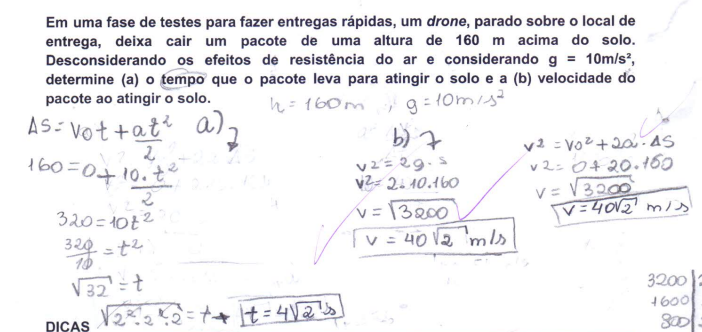 Em uma fase de testes para fazer entregas rápidas, um drone, parado sobre o local de
entrega, deixa cair um pacote de uma altura de 160 m acima do solo.
Desconsiderando os efeitos de resistência do ar e considerando g = 10m/s²,
determine (a) o tempo que o pacote leva para atingir o solo e a (b) velocidade do
pacote ao atingir o solo.
h = 160m , g = 10m/s²
ΔS = Vot + at²/2
a)
160 = 0 + 10.t²/2
320 = 10t²
320/10 = t²
√32 = t
√2².2².2 = t → t = 4√2 s
b)
v² = 2g.s
v² = 2.10.160
v = √3200
v = 40√2 m/s
v² = Vo² + 2a.ΔS
v² = 0 + 20.160
v = √3200
v = 40√2 m/s
3200
1600
800
DICAS